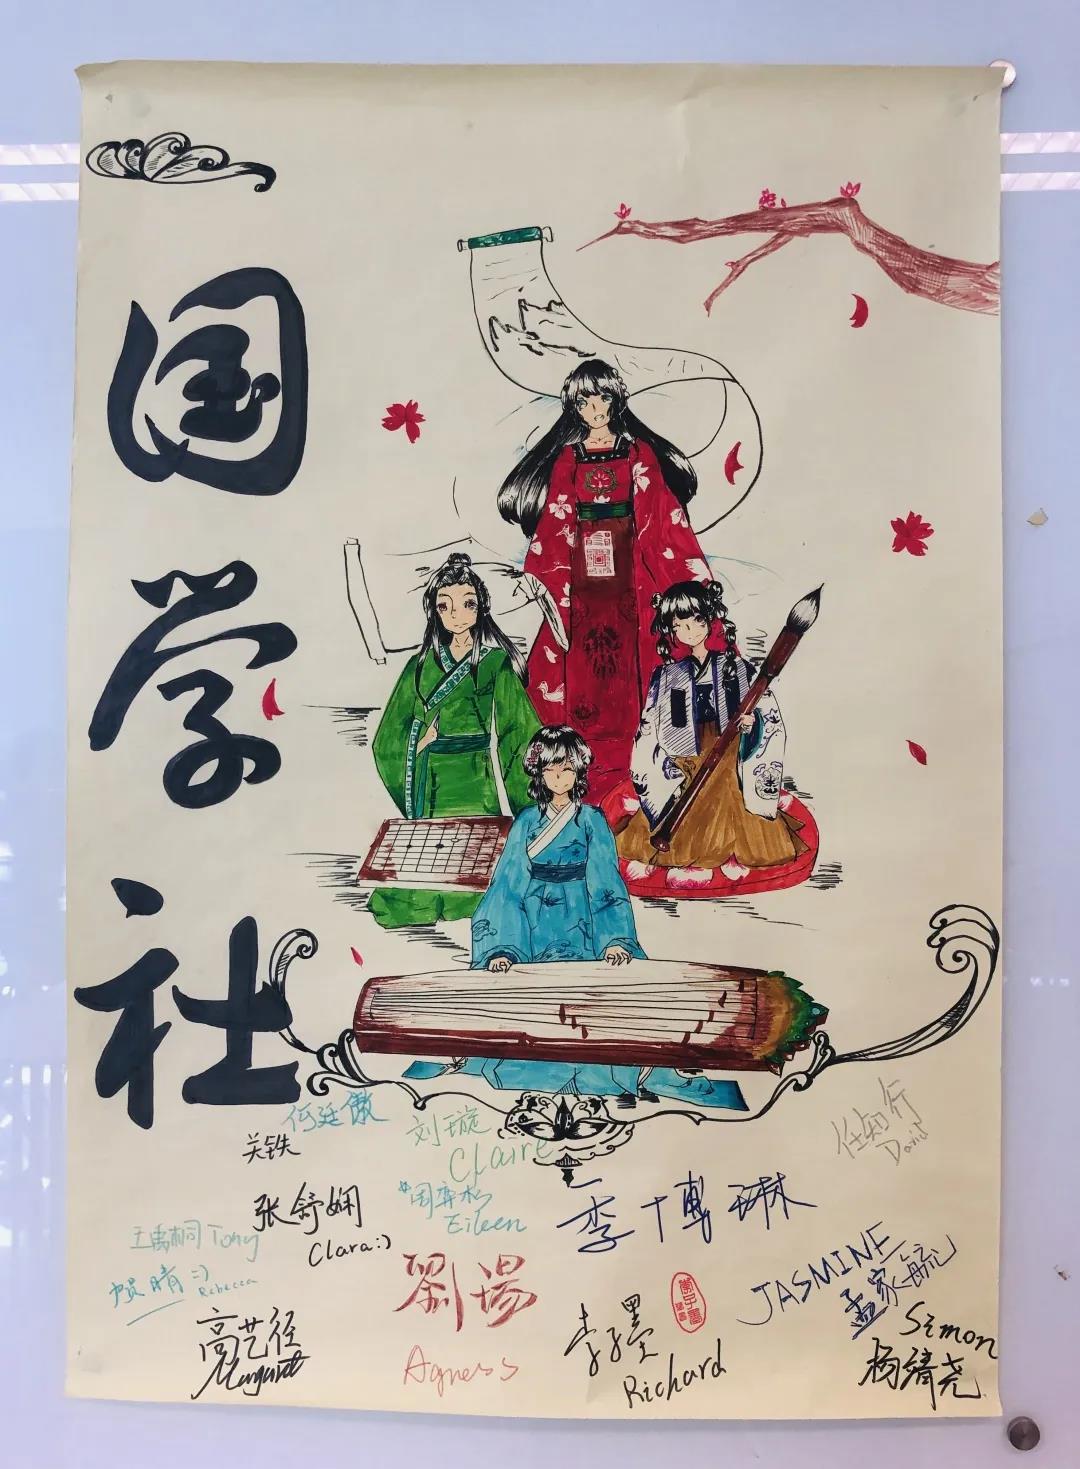 国学社
何廷傲
关铁
刘璇
Claire
任知行
David
张舒娴
Clara:)
Eileen
李博琳
王禹桐 Tony
晴:)
Rebecca
劉場
Agness
高艺径
Margaret
李子墨
Richard
JASMINE
孟家毓
Simon
杨婧尧